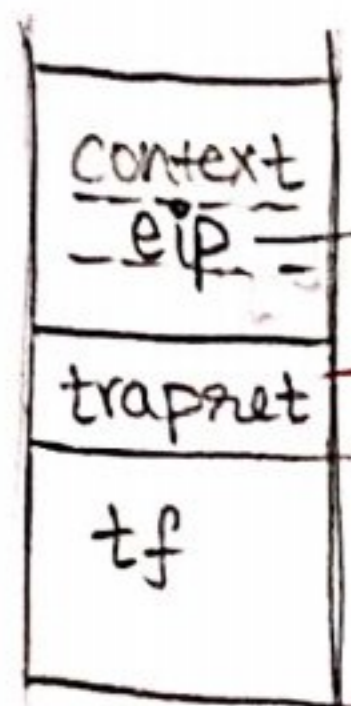 context
eip
trapret
tf